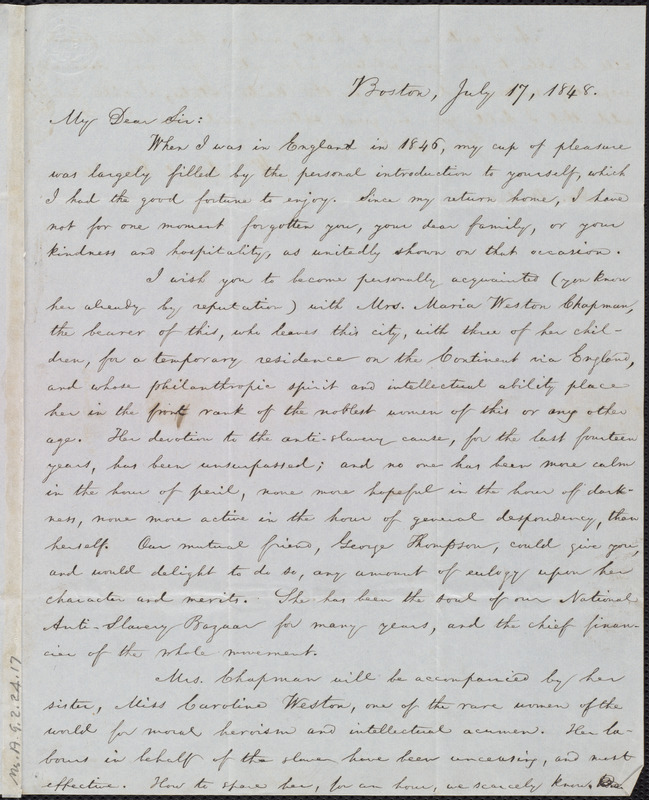 Boston, July 17, 1848.
My Dear Sir:
When I was in England in 1846, my cup of pleasure
was largely filled by the personal introduction to yourself, which
I had the good fortune to enjoy. Since my return home, I have
not for one moment forgotten you, your dear family, or your
kindness and hospitality, as unitedly shown on that occasion.
I wish you to become personally acquainted (you know
her already by reputation) with Mrs. Maria Weston Chapman,
the bearer of this, who leaves this city, with three of her chil-
dren, for a temporary residence on the Continent via England,
and whose philanthropic spirit and intellectual ability place
her in the front rank of the noblest women of this or any other
age. Her devotion to the anti-slavery cause, for the last fourteen
years, has been unsurpassed; and no one has been more calm
in the hour of peril, none more hopeful in the hour of dark-
ness, none more active in the hour of general despondency, than
herself. Our mutual friend, George Thompson, could give you,
and would delight to do so, any amount of eulogy upon her
character and merits. She has been the soul of our National
Anti-Slavery Bazaar for many years, and the chief finan-
cier of the whole movement.
Mrs. Chapman will be accompanied by her
sister, Miss Caroline Weston, one of the rare women of the
world for moral heroism and intellectual acumen. Her la-
bours in behalf of the slave have been unceasing, and most
effective. How to spare her, for an hour, we scarcely know.
Ms. A. 9. 2. 24. 17